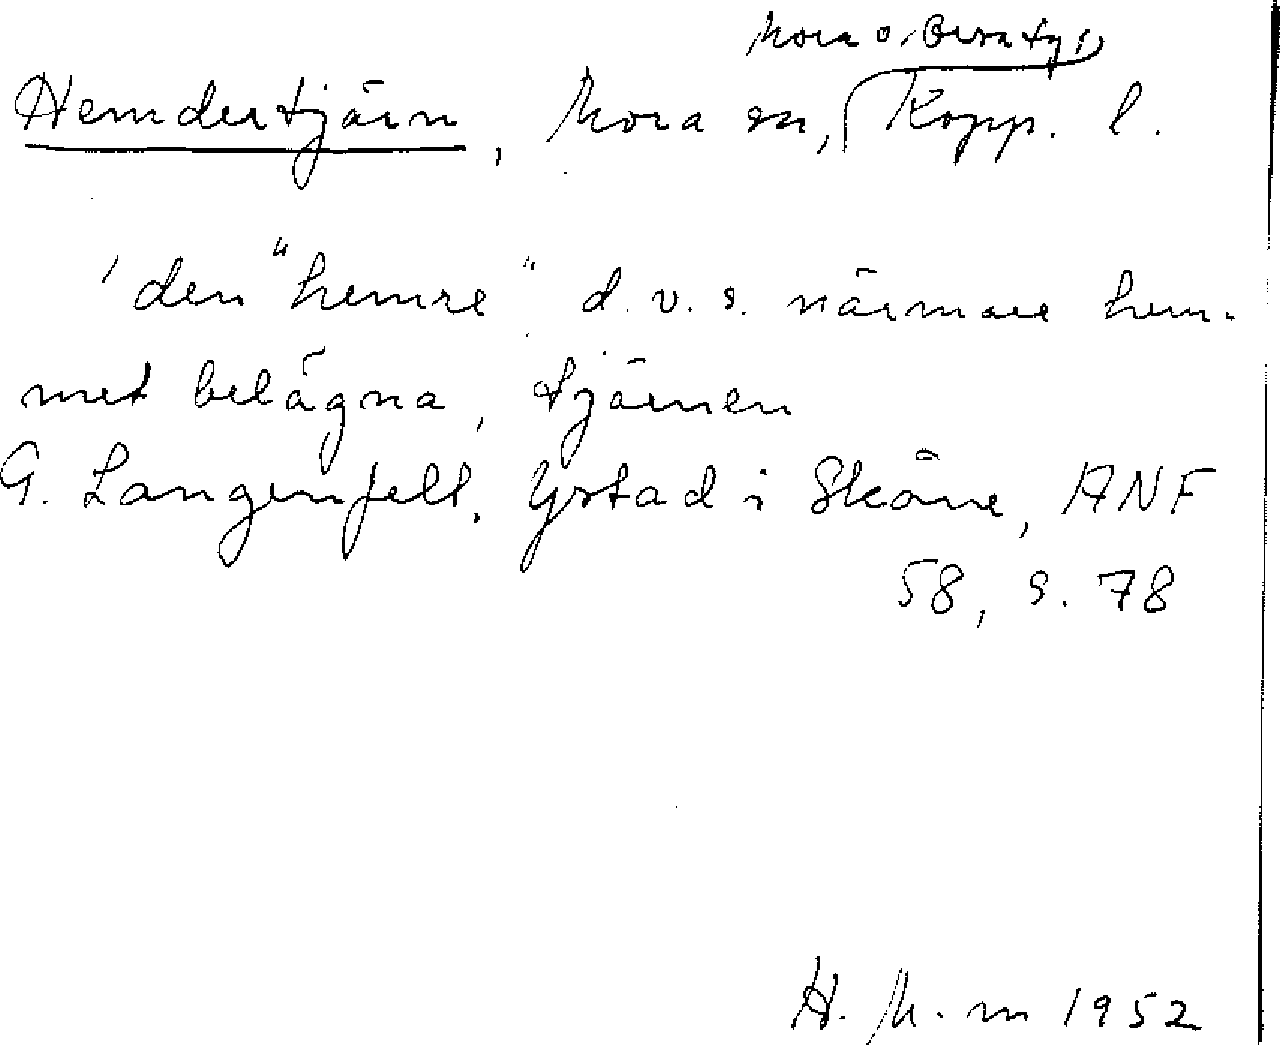 Mora o. Orsa tgl)
Hemdertjärn, Mora sn, Kopp. l.
'den "hemre" d.v.s. närmare hem-
met belägna, tjärnen
G. Langenfelt, Ystad i Skåne, ANF
58, s. 78
H. M-m 1952